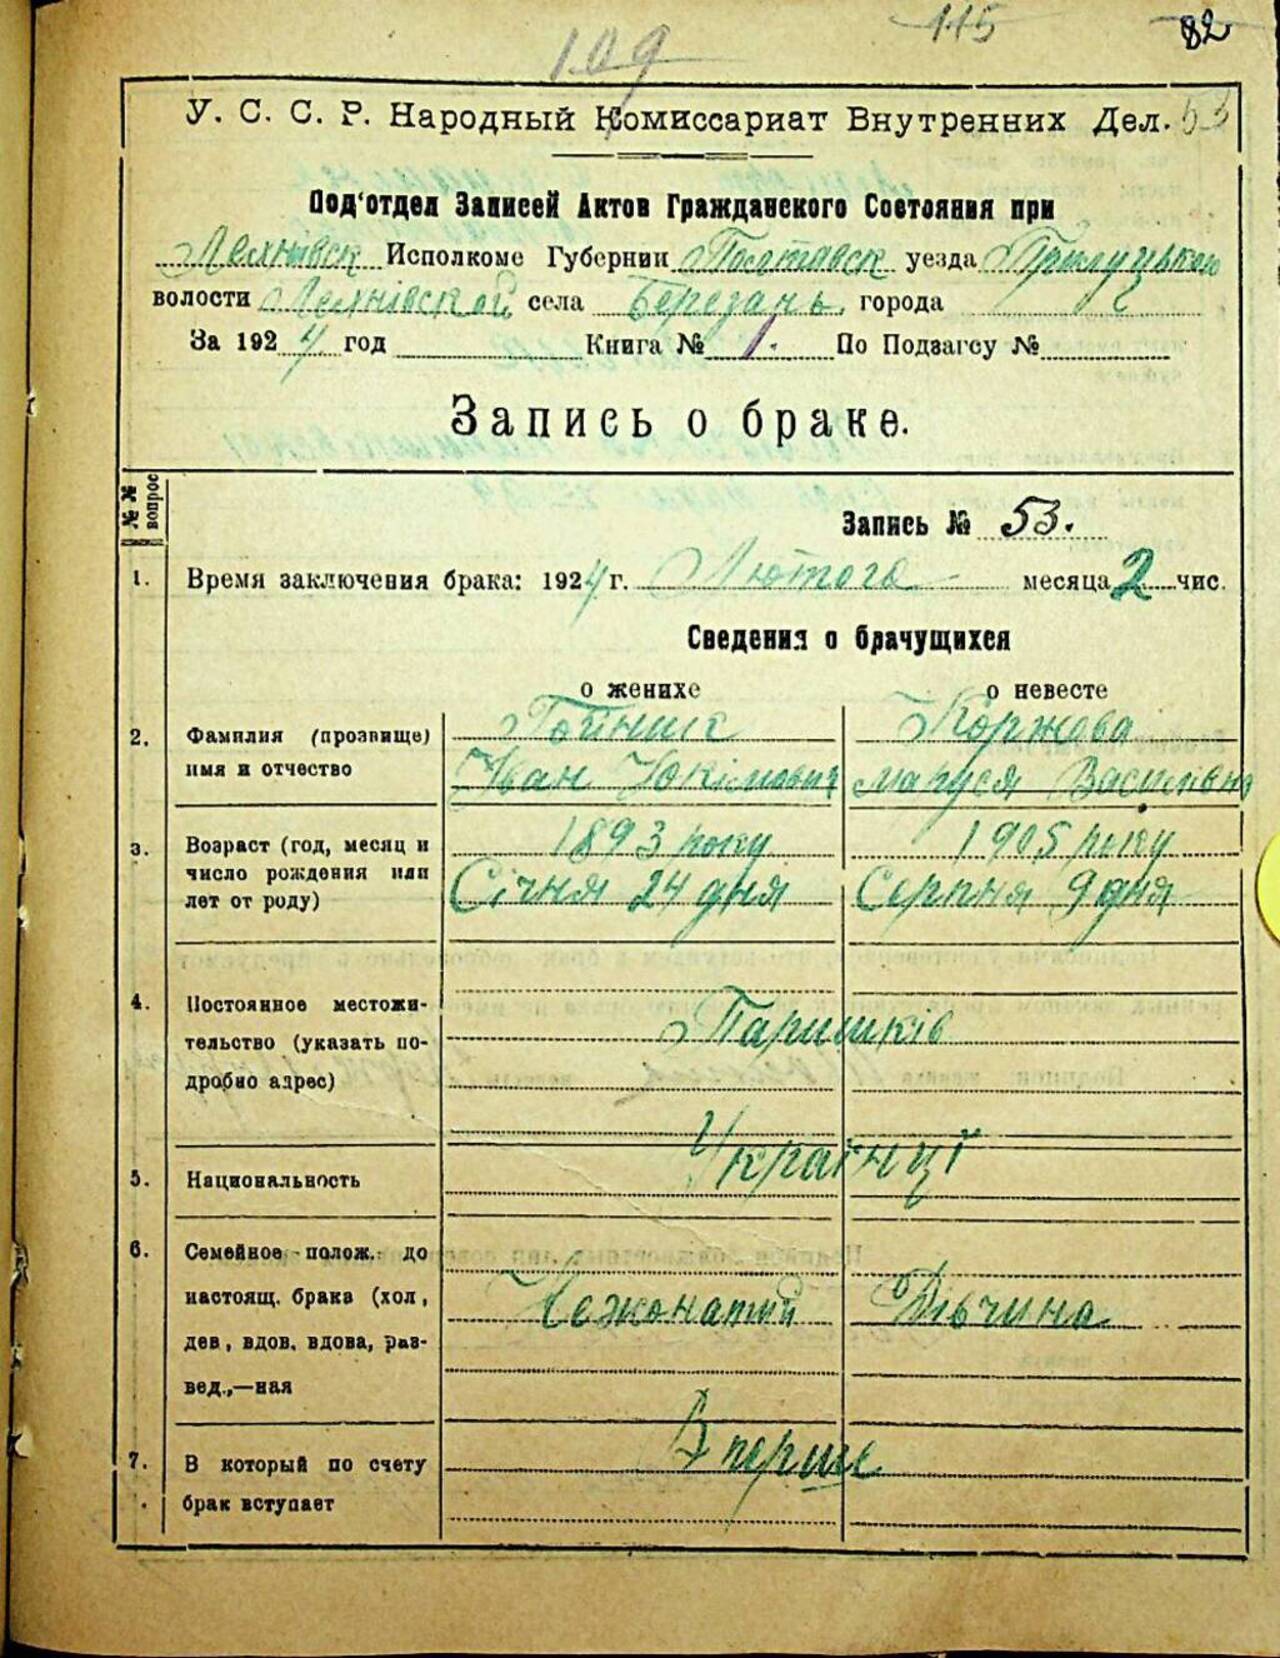 109 115 82
У. С. С. Р. Народный Комиссариат Внутренних Дел. 53
Под'отдел Записей Актов Гражданского Состояния при
Лехнівск Исполкоме Губернии Полтавск уезда Прилуцькою
волости Лехнівской села Березань города
За 1924 год Книга № 1. По Подзагсу №
Запись о браке.
№ № вопрос
Запись № 53.
1. Время заключения брака: 1924 г. Лютого месяца 2 чис.
Сведения о брачущихся
о женихе о невесте
2. Фамилия (прозвище) Гойник Коржова
имя и отчество Іван Юхімович Маруся Василівна
3. Возраст (год, месяц и 1893 року 1905 року
число рождения или Січня 24 дня Серпня 9 дня
лет от роду)
4. Постоянное местожи- Паришків
тельство (указать по-
дробно адрес)
5. Национальность Українці
6. Семейное полож. до
настоящ. брака (хол, Нежонатий Дівчина
дев, вдов, вдова, раз-
вед.,—ная
7. В который по счету Вперше
брак вступает